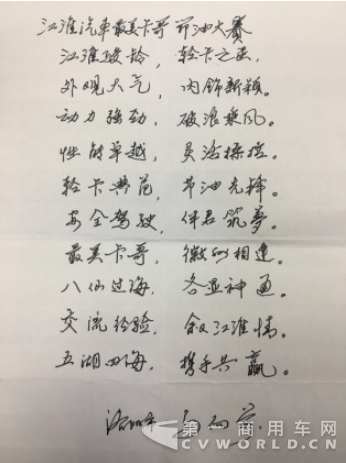 江淮汽车最美卡哥 节油大赛
江淮骏铃，轻卡之王，
外观大气，内饰新颖。
动力强劲，破浪乘风。
性能卓越，灵活操控。
轻卡典范，节油先锋。
安全驾驶，伴君筑夢。
最美卡哥，微山相逢。
八仙过海，各显神通。
交流经验，叙江淮情。
五湖四海，携手共赢。
第一商用车网
CVWORLD.CN